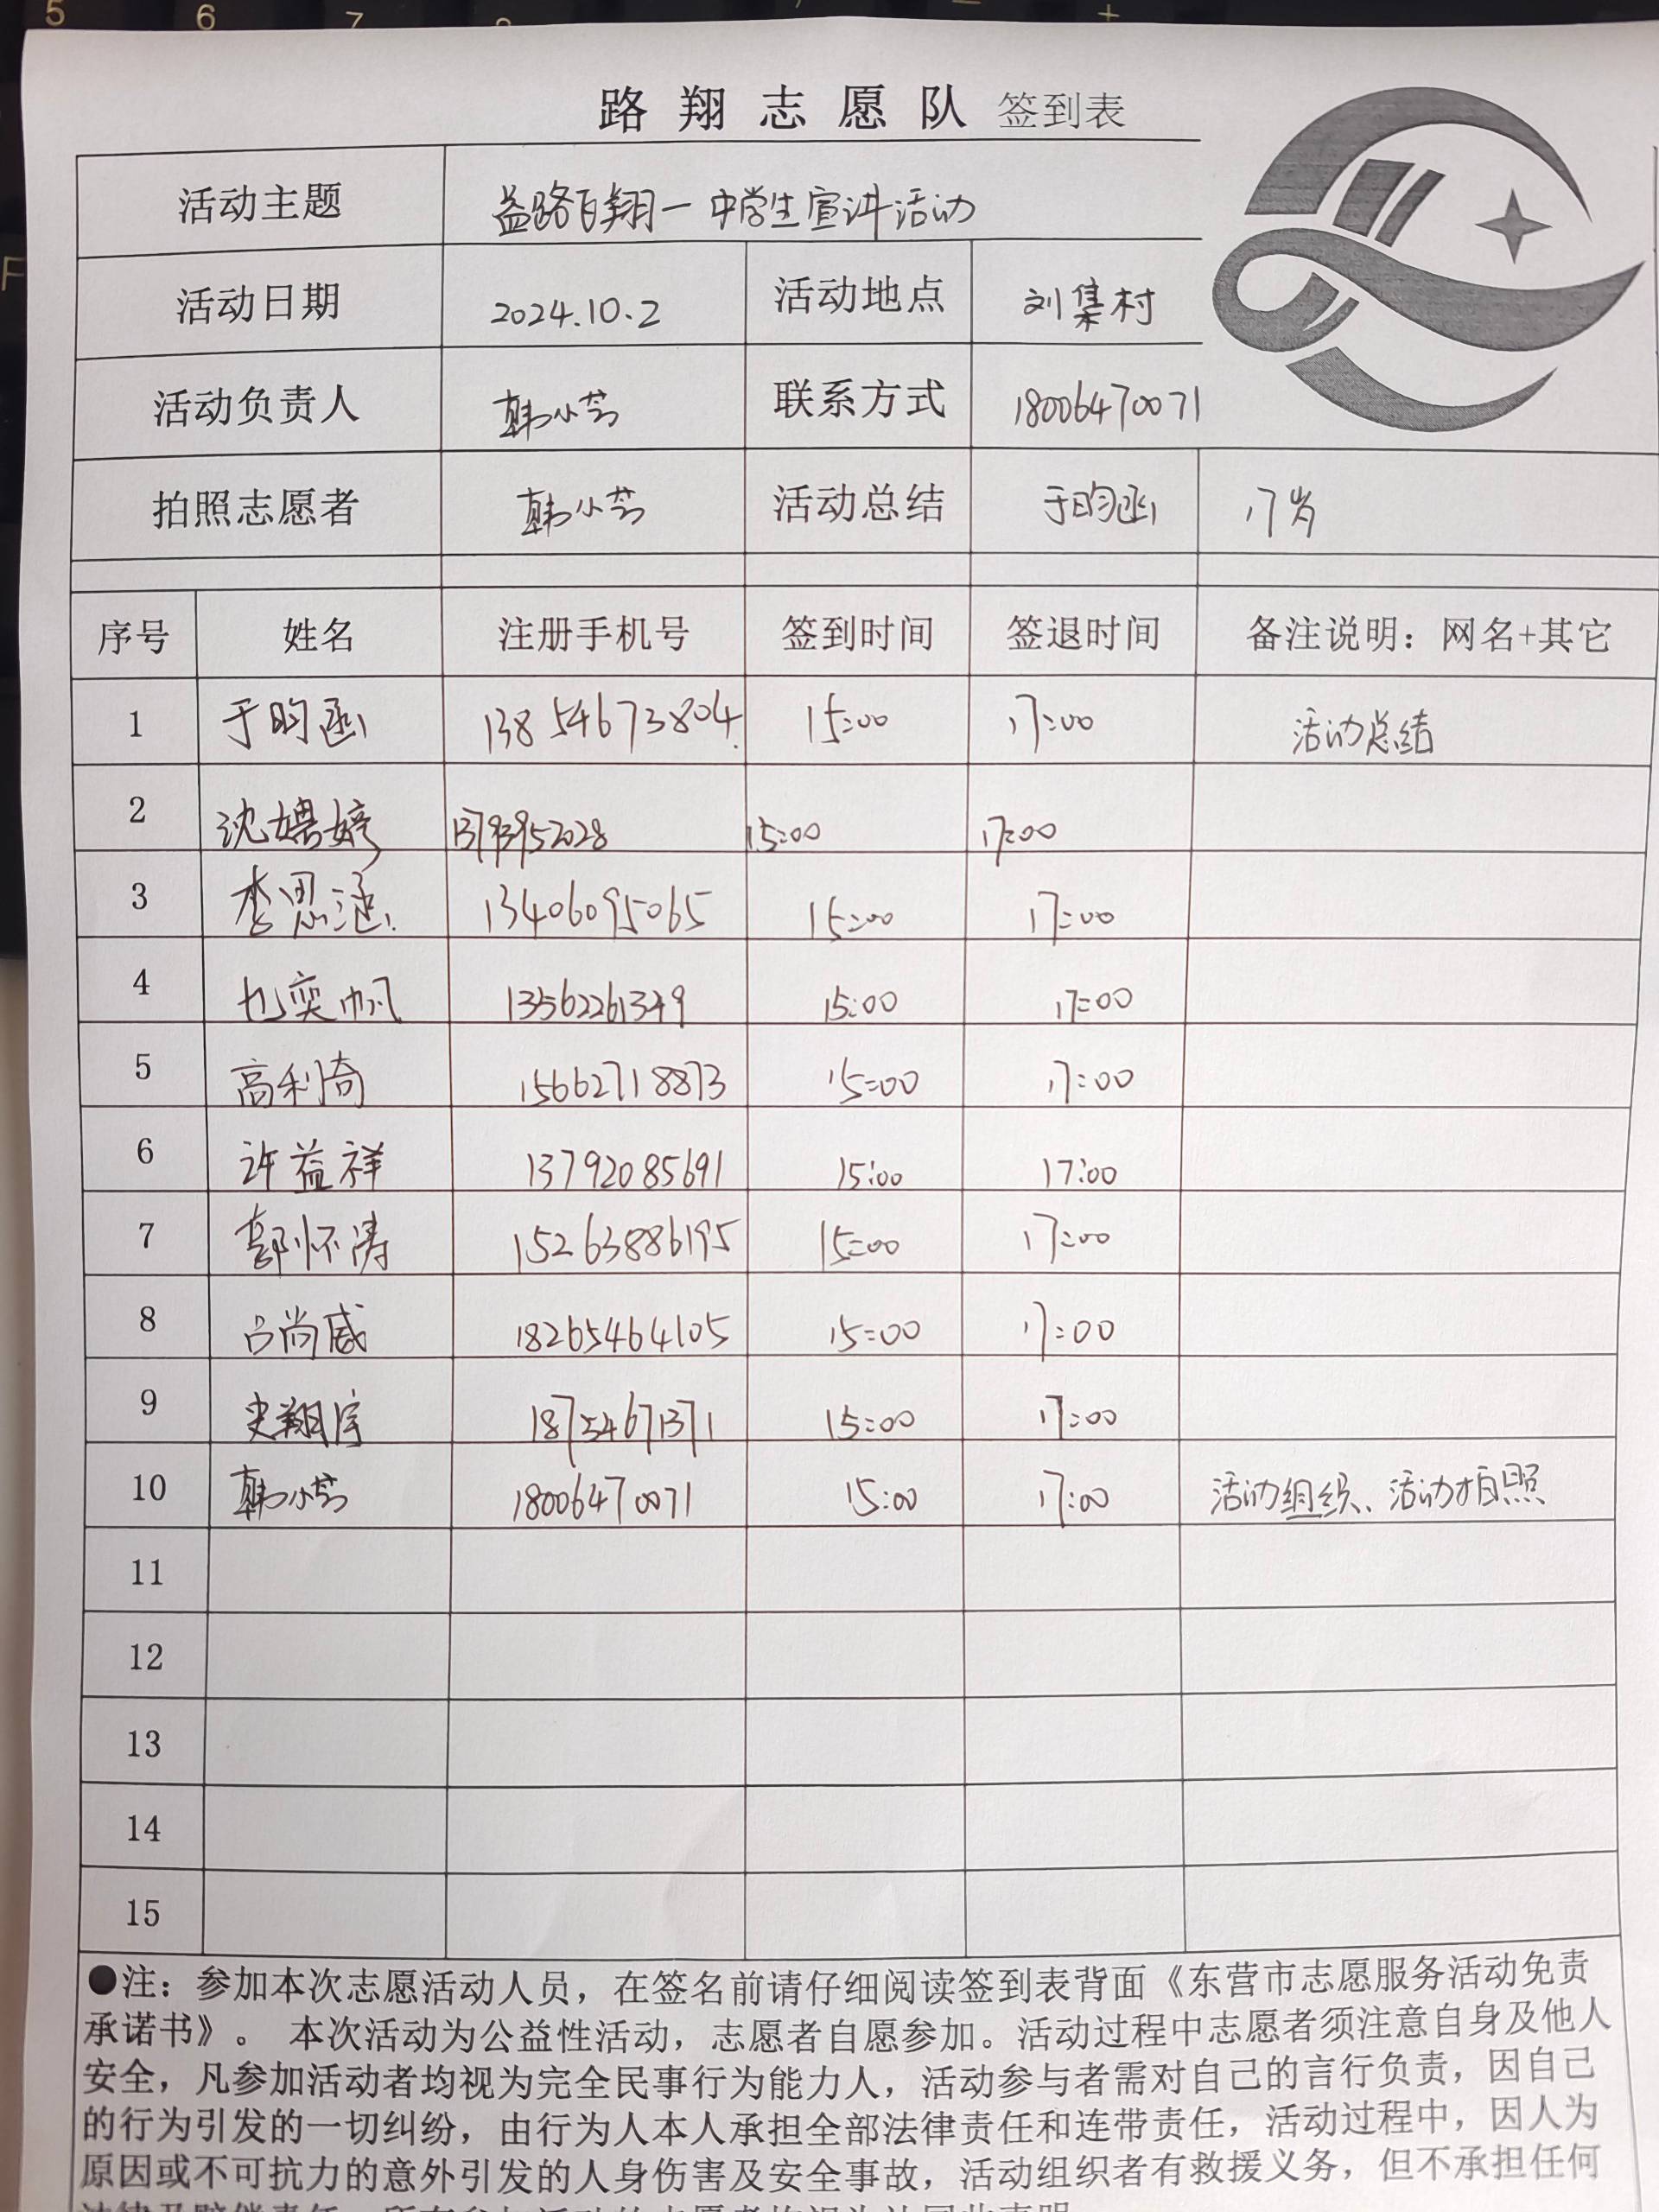 5 6 7
F
路翔志愿队 签到表
活动主题 益路百翔一中学生宣讲活动
活动日期 2024.10.2 活动地点 刘集村
活动负责人 韩小芳 联系方式 18006470071
拍照志愿者 韩小芳 活动总结 于昀函 17岁
序号 姓名 注册手机号 签到时间 签退时间 备注说明：网名+其它
1 于昀函 13854673804 15:00 17:00 活动总结
2 沈娉婷 13793952028 15:00 17:00
3 李思涵 13406095065 15:00 17:00
4 奕帆 13562261349 15:00 17:00
5 高利奇 15662718873 15:00 17:00
6 许益祥 13792085691 15:00 17:00
7 郭怀涛 15263886195 15:00 17:00
8 吕尚威 18265464105 15:00 17:00
9 史翔宇 18754671371 15:00 17:00
10 韩小芳 18006470071 15:00 17:00 活动组织、活动拍照
11
12
13
14
15
●注：参加本次志愿活动人员，在签名前请仔细阅读签到表背面《东营市志愿服务活动免责
承诺书》。 本次活动为公益性活动，志愿者自愿参加。活动过程中志愿者须注意自身及他人
安全，凡参加活动者均视为完全民事行为能力人，活动参与者需对自己的言行负责，因自己
的行为引发的一切纠纷，由行为人本人承担全部法律责任和连带责任，活动过程中，因人为
原因或不可抗力的意外引发的人身伤害及安全事故，活动组织者有救援义务，但不承担任何